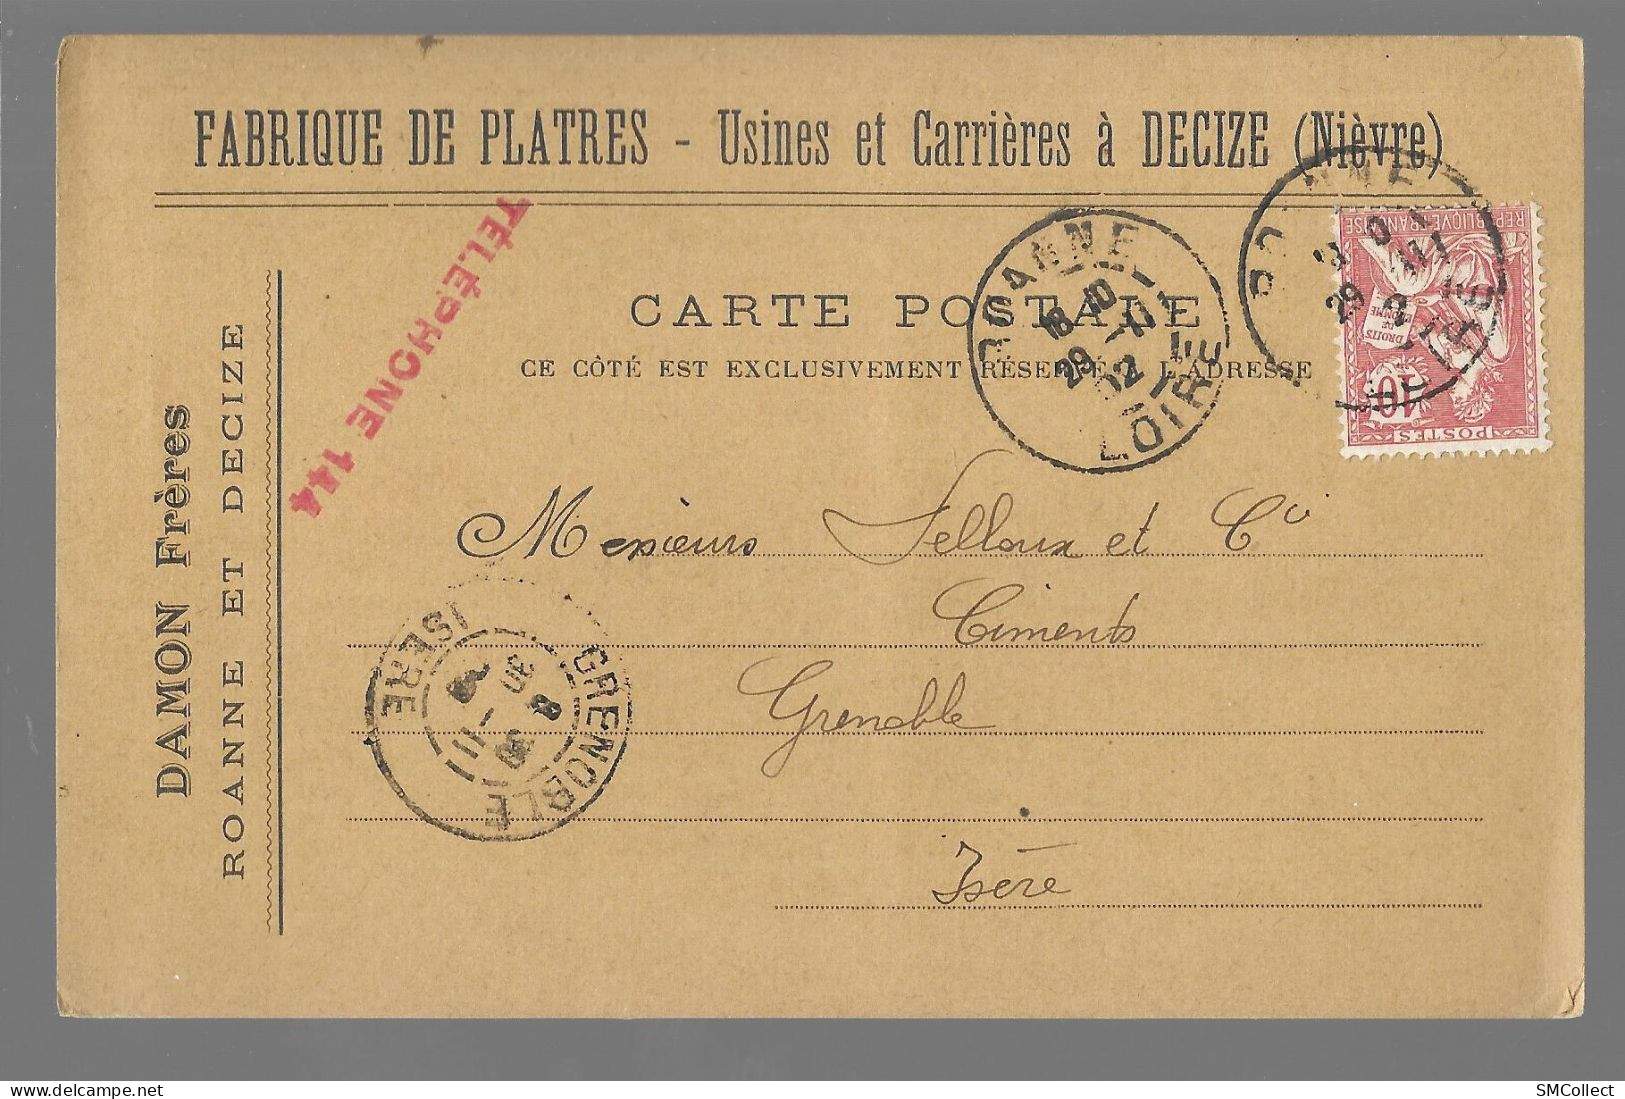 FABRIQUE DE PLATRES - Usines et Carrières à DECIZE (Nièvre)
TÉLÉPHONE 144
DAMON Frères
ROANNE ET DECIZE
CARTE POSTALE
CE CÔTÉ EST EXCLUSIVEMENT RÉSERVÉ A L'ADRESSE
ROANNE
18 10
29 -11
02
LOIRE
REPUBLIQUE FRANÇAISE
DROITS DE HOMME
10
POSTES
Messieurs Pelloux et Cie
Ciments
Grenoble
Isère
GRENOBLE
ISERE
SMCollect